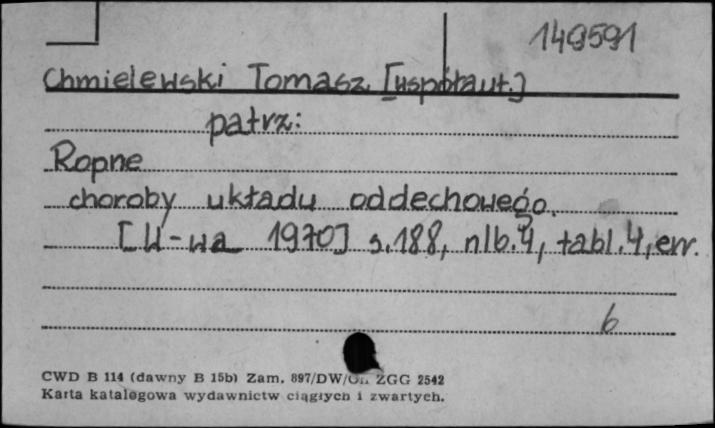 149591
Chmielewski Tomasz [współaut.]
patrz:
Ropne
choroby układu oddechowego.
[W-wa 1970] s.188, nlb.4, tabl.4, err.
b
CWD B 114 (dawny B 15b) Zam. 897/DW/ ZGG 2542
Karta katalogowa wydawnictw ciągłych i zwartych.